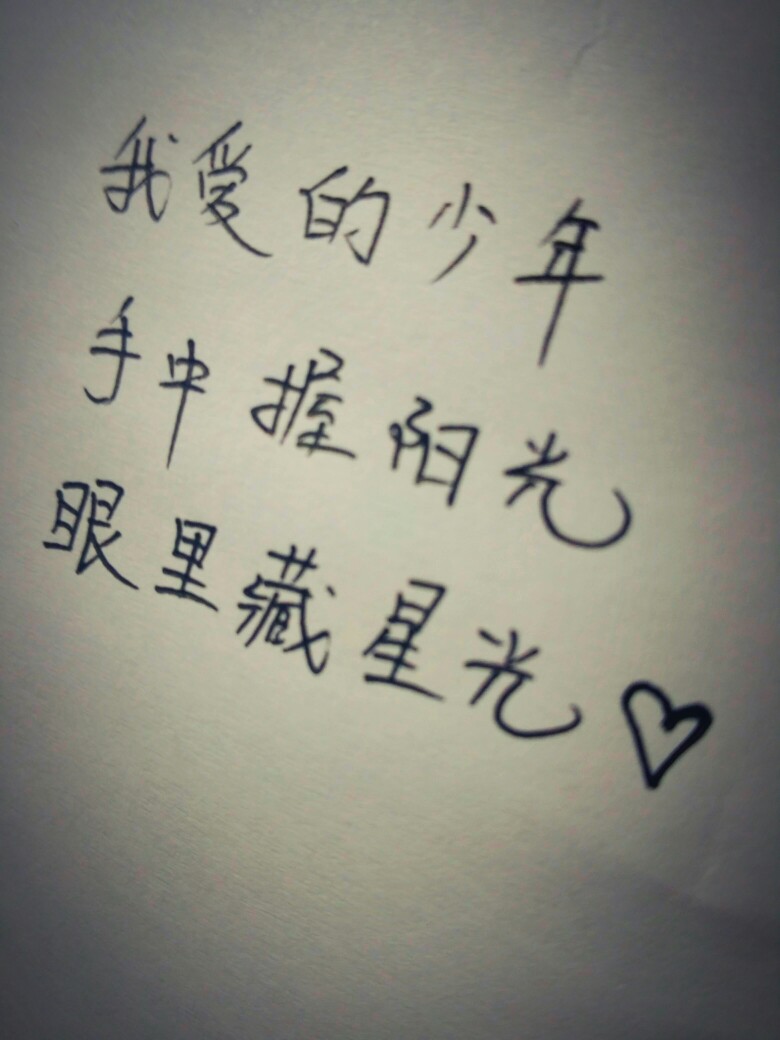 我爱的少年
手中握阳光
眼里藏星光